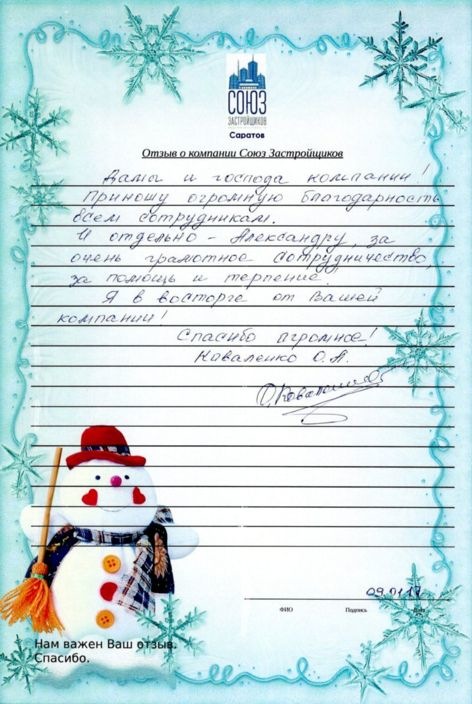 СОЮЗ
ЗАСТРОЙЩИКОВ
Саратов
Отзыв о компании Союз Застройщиков
Дамы и господа компании!
Приношу огромную благодарность
всем сотрудникам.
И отдельно - Александру, за
очень грамотное сотрудничество,
за помощь и терпение.
Я в восторге от Вашей
компании!
Спасибо огромное!
Коваленко О.А.
09.01.17
ФИО Подпись Дата
Нам важен Ваш отзыв.
Спасибо.